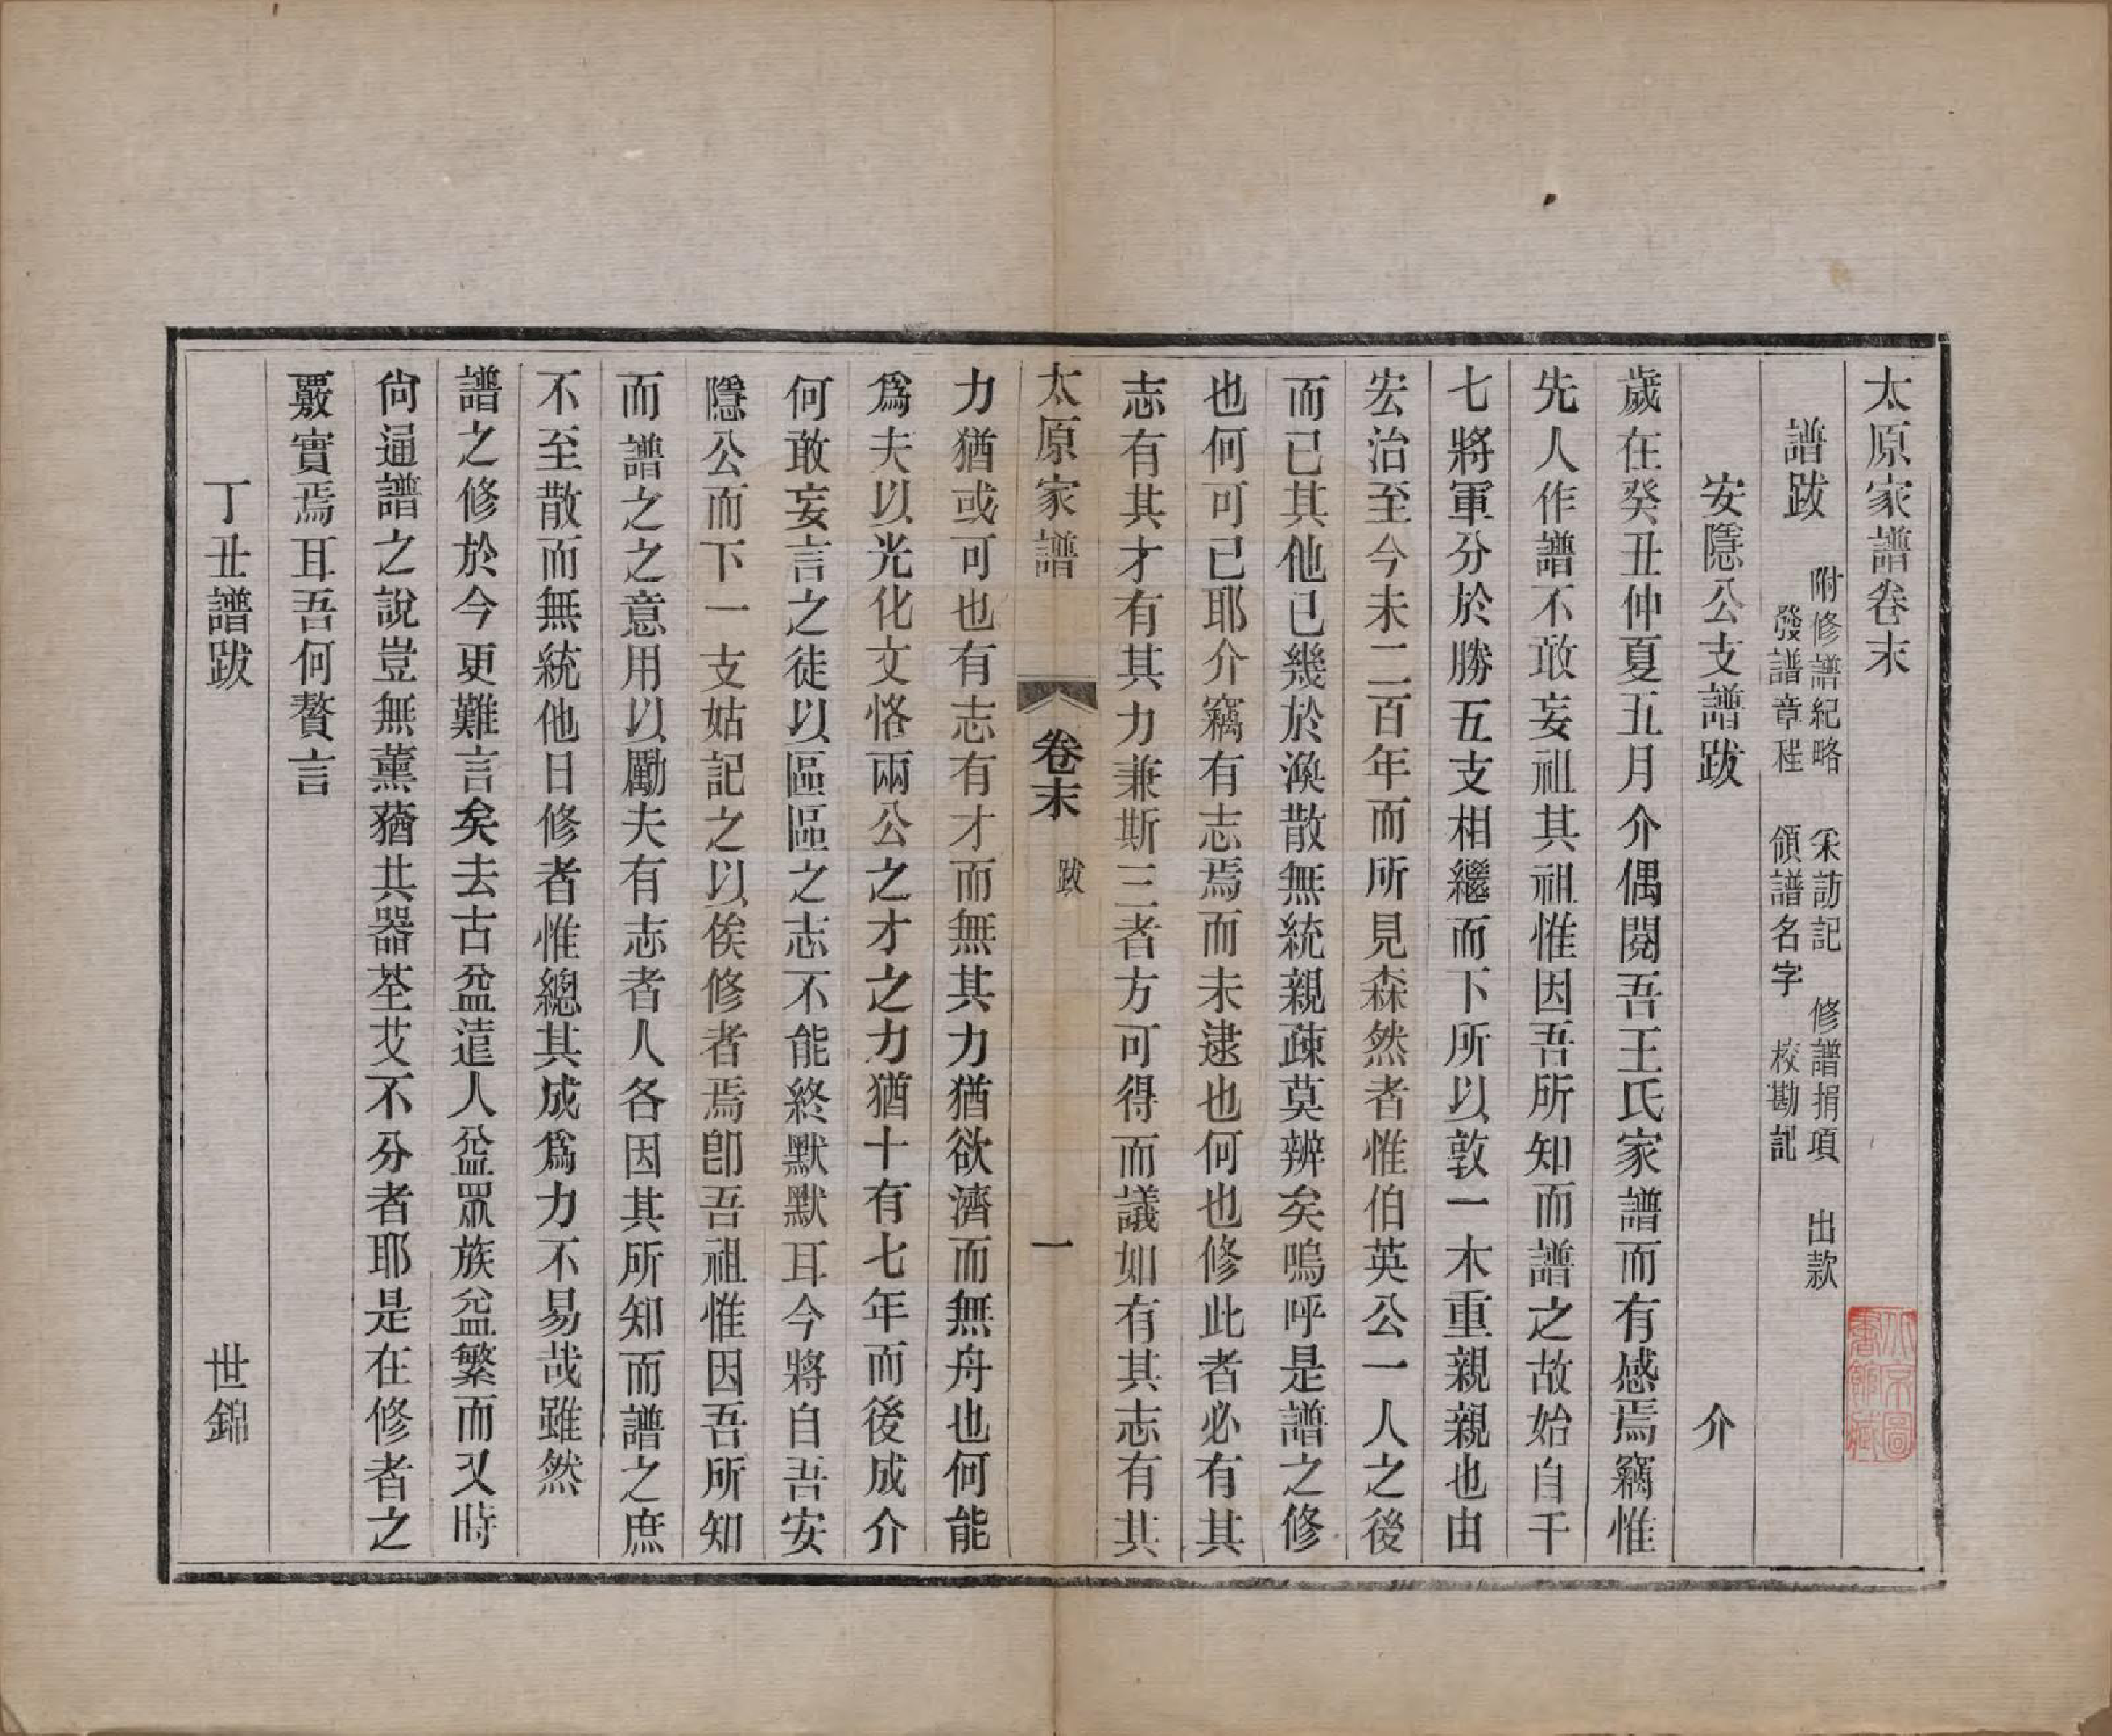 太原家譜卷末
譜跋
附修譜紀略　采訪記　修譜捐項　出款
發譜章程　領譜名字　校勘記
安隱公支譜跋　介
歲在癸丑仲夏五月介偶閱吾王氏家譜而有感焉竊惟
先人作譜不敢妄祖其祖惟因吾所知而譜之故始自千
七將軍分於勝五支相繼而下所以敦一木重親親也由
宏治至今未二百年而所見森然者惟伯英公一人之後
而已其他已幾於渙散無統親疎莫辨矣嗚呼是譜之修
也何可已耶介竊有志焉而未逮也何也修此者必有其
志有其才有其力兼斯三者方可得而議如有其志有其
太原家譜　卷末　跋　一
力猶或可也有志有才而無其力猶欲濟而無舟也何能
爲夫以光化文恪兩公之才之力猶十有七年而後成介
何敢妄言之徒以區區之志不能終默默耳今將自吾安
隱公而下一支姑記之以俟修者焉卽吾祖惟因吾所知
而譜之之意用以勵夫有志者人各因其所知而譜之庶
不至散而無統他日修者惟總其成爲力不易哉雖然
譜之修於今更難言矣去古益遠人益眾族益繁而又時
尙通譜之說豈無薰蕕共器荃艾不分者耶是在修者之
覈實焉耳吾何贅言
丁丑譜跋　世錦
北京圖
書館藏